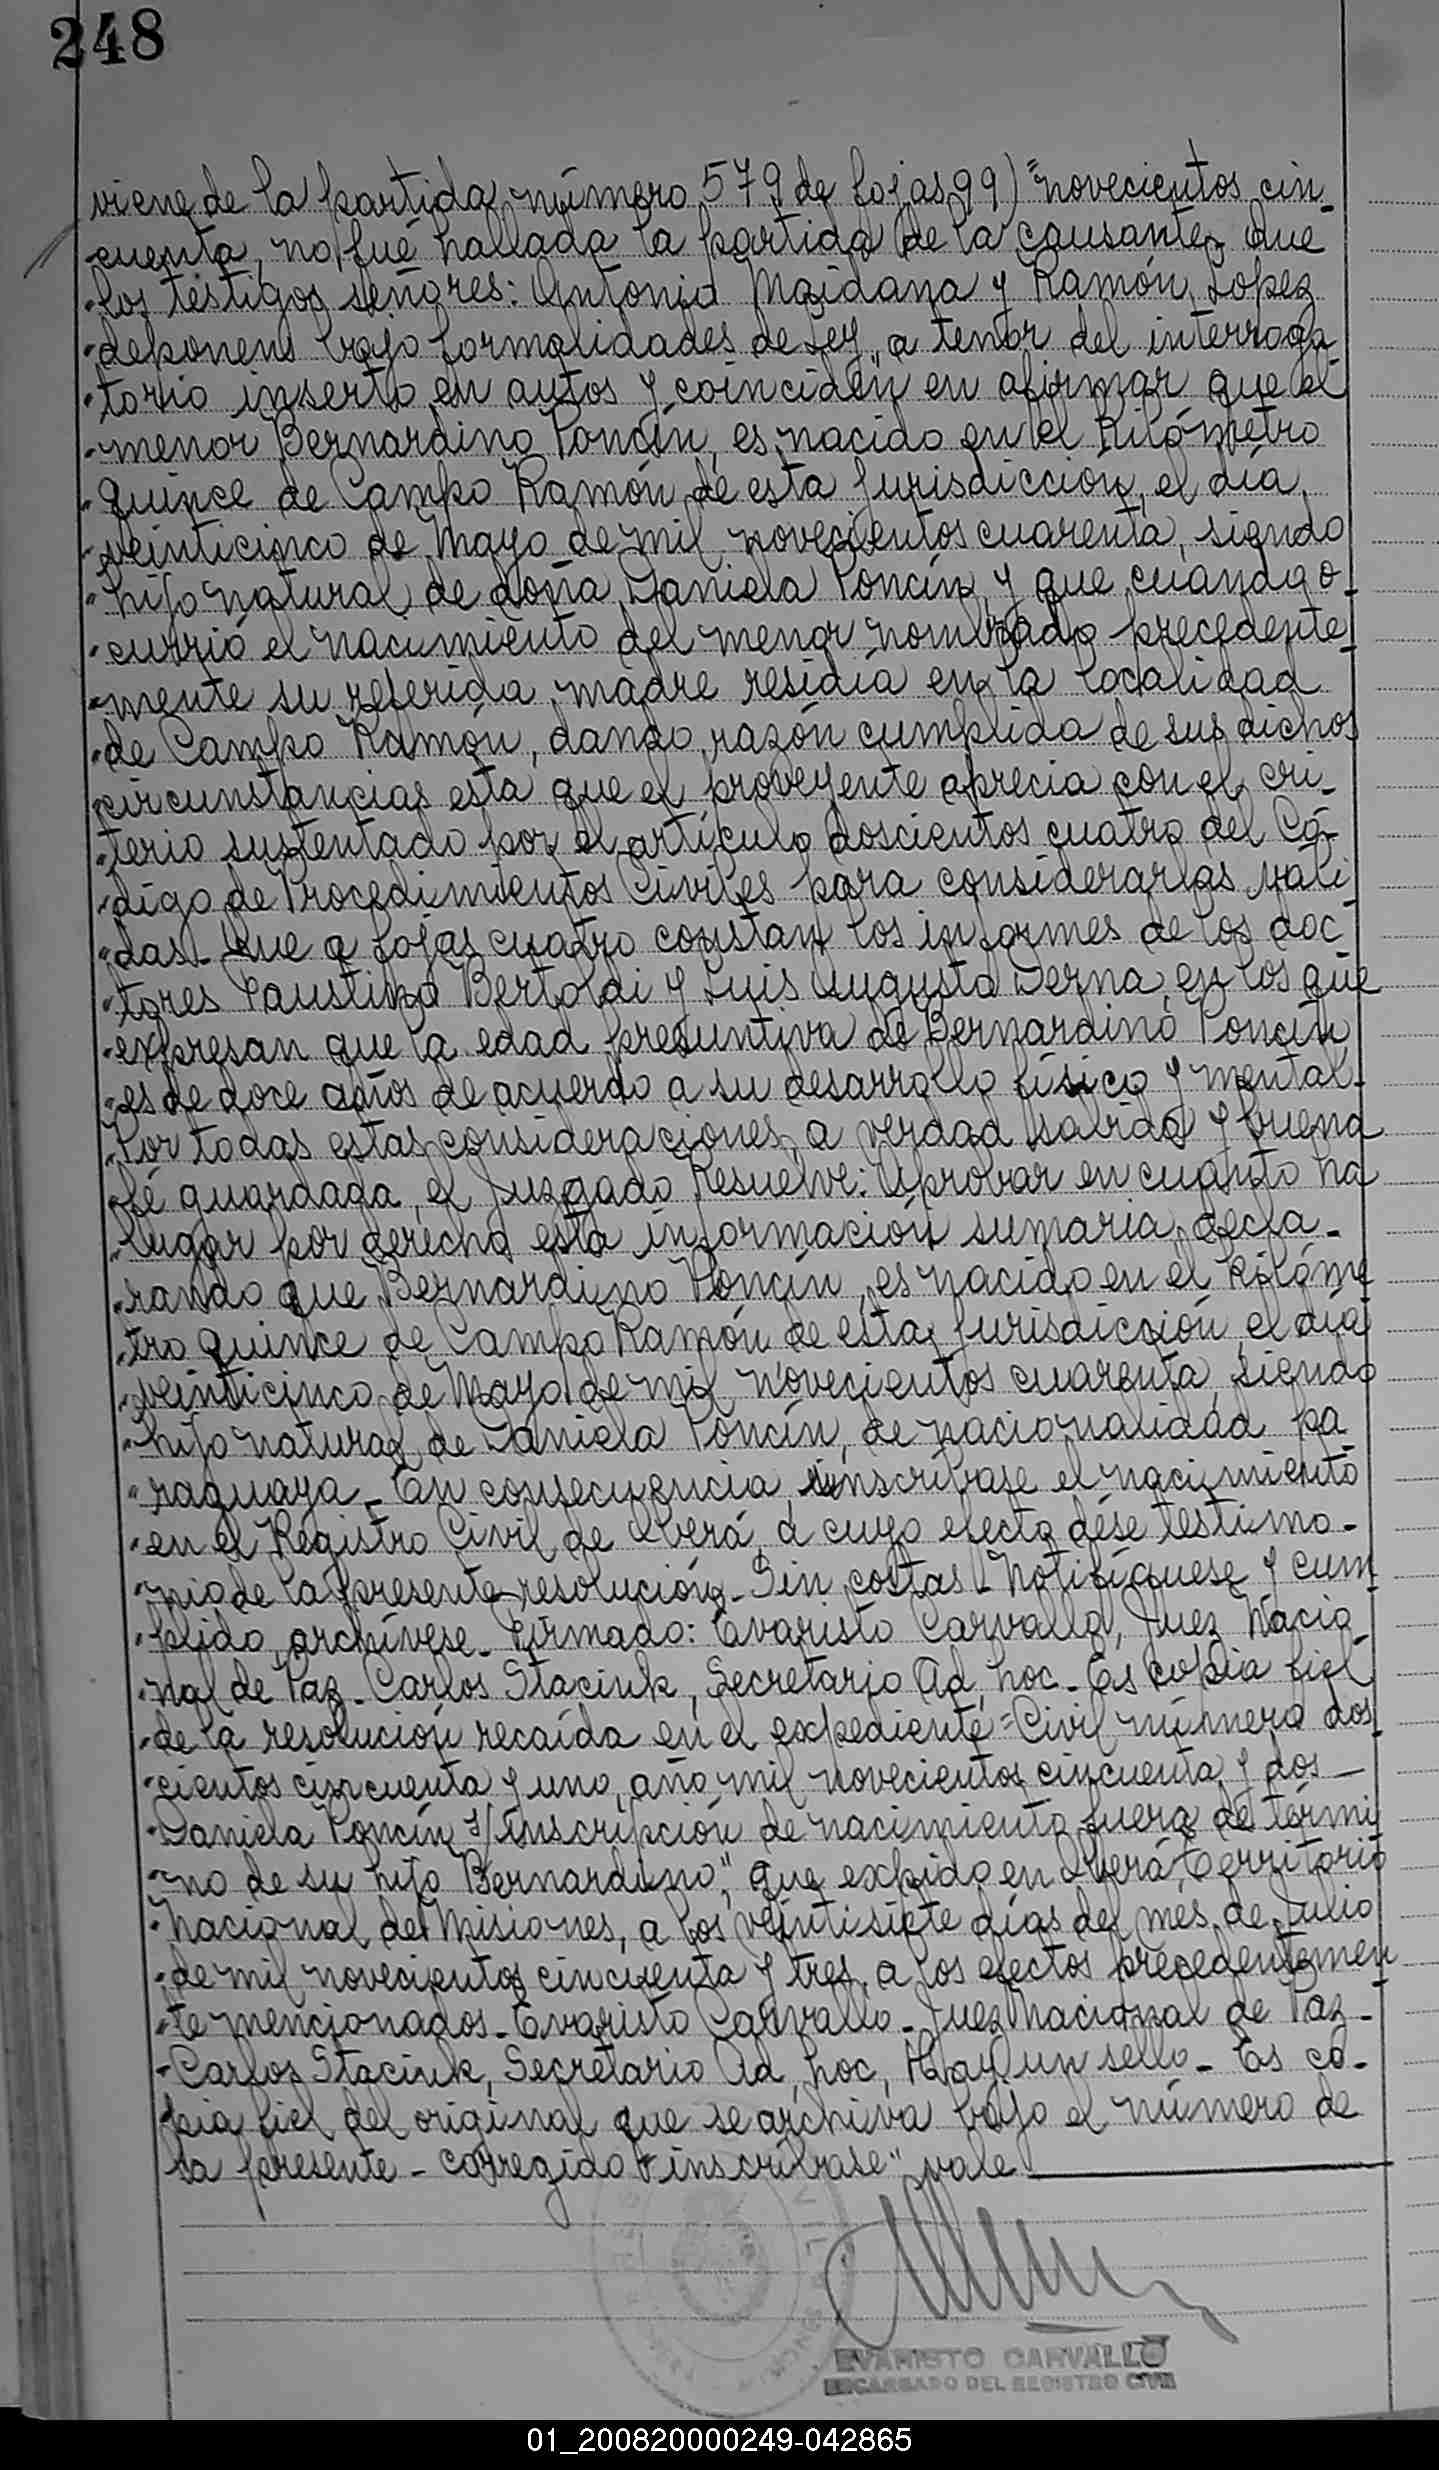 248
viene de la partida número 579 de fojas 99) "novecientos cin-
cuenta, no fué hallada la partida de la causante. Que
"los testigos señores: Antonio Maidana y Ramón Lopez
"deponen bajo formalidades de Ley, a tenor del interroga
"torio inserto en autos y coinciden en afirmar que el
"menor Bernardino Poncín, es nacido en el Kilómetro
"quince de Campo Ramón de esta jurisdicción, el día
"veinticinco de Mayo de mil novecientos cuarenta, siendo
"hijo natural de doña Daniela Poncín, y que cuando o-
"currió el nacimiento del menor nombrado precedente
"mente su referida madre residía en la localidad
"de Campo Ramón, dando razón cumplida de sus dichos
"circunstancias esta que el proveyente aprecia con el cri-
"terio sustentado por el artículo doscientos cuatro del Có-
"digo de Procedimientos Civiles para considerarlas váli
"das. Que a fojas cuatro constan los informes de los doc
"tores Faustino Bertoldi y Luis Augusto Derna, en los que
"expresan que la edad presuntiva de Bernardino Poncín
"es de doce años de acuerdo a su desarrollo físico y mental.
"Por todas estas consideraciones, a verdad sabida y buena
"fé guardada, el Juzgado Resuelve: Aprobar en cuanto ha
"lugar por derecho esta información sumaria, decla-
"rando que Bernardino Poncín, es nacido en el Kilóme
"tro quince de Campo Ramón de esta jurisdicción, el día
"veinticinco de Mayo de mil novecientos cuarenta, siendo
"hijo natural de Daniela Poncín, de nacionalidad pa
"raguaya. En consecuencia, inscríbase el nacimiento
"en el Registro Civil de Oberá, a cuyo efecto dése testimo-
"nio de la presente resolución. Sin costas. Notifíquese y cum
"plido, archívese. Firmado: Evaristo Carvallo, Juez Nacio
"nal de Paz. Carlos Staciuk, Secretario Ad, hoc. Es copia fiel
"de la resolución recaída en el expediente "Civil número dos
"cientos cincuenta y uno, año mil novecientos cincuenta y dos
"Daniela Poncín s/inscripción de nacimiento fuera de térmi
"no de su hijo Bernardino", que expido en Oberá, Territorio
"Nacional de Misiones, a los veintisiete días del mes de Julio
"de mil novecientos cincuenta y tres, a los efectos precedentemen
"te mencionados. Evaristo Carvallo. Juez Nacional de Paz.
"Carlos Staciuk, Secretario Ad, hoc, Hay un sello. Es co-
pia fiel del original que se archiva bajo el número de
la presente - corregido "inscríbase" vale
EVARISTO CARVALLO
ENCARGADO DEL REGISTRO CIVIL
01_200820000249-042865